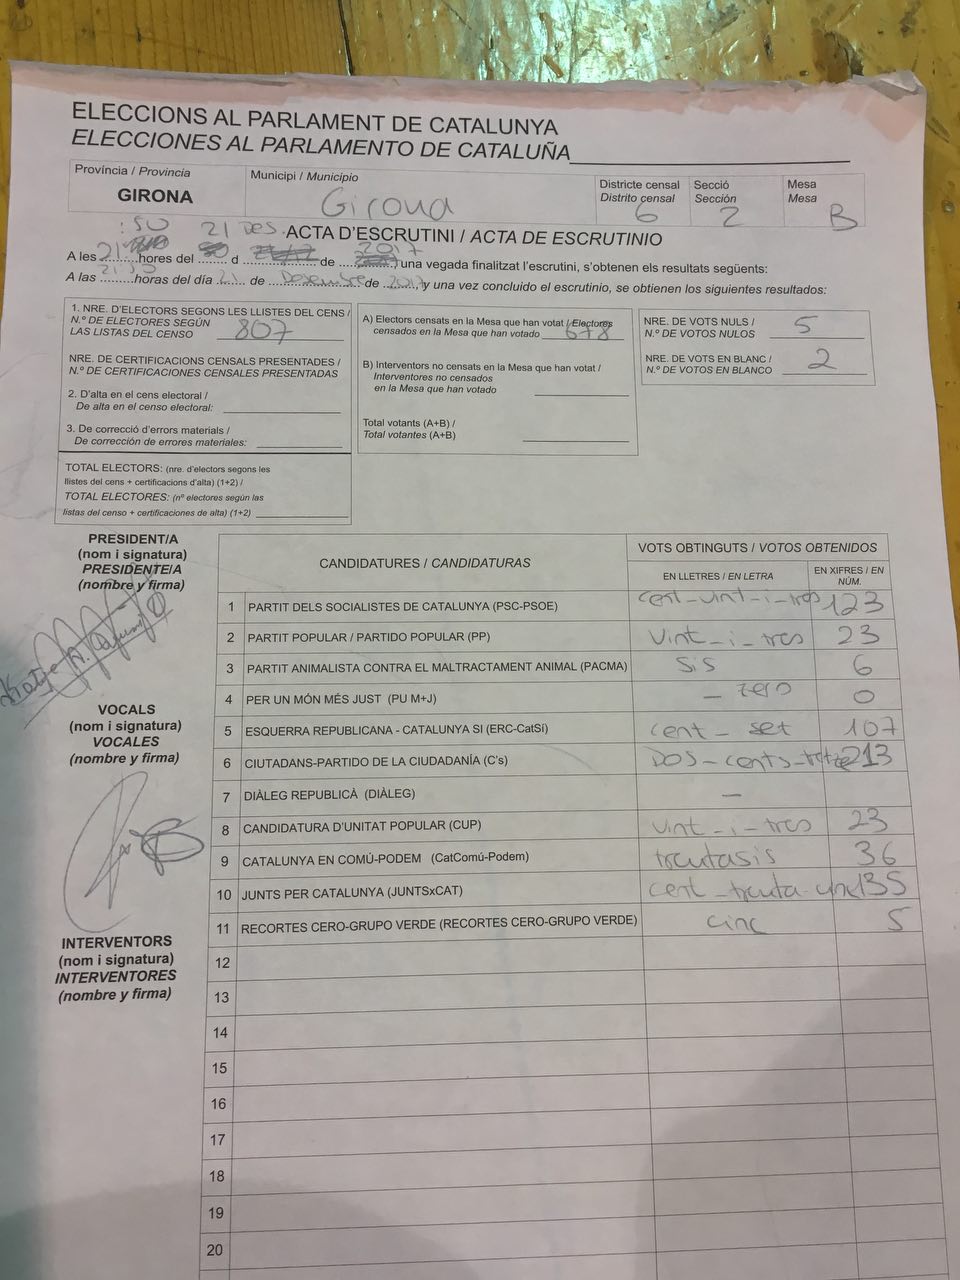 ELECCIONS AL PARLAMENT DE CATALUNYA
ELECCIONES AL PARLAMENTO DE CATALUÑA
Província / Provincia
GIRONA
Municipi / Municipio
Girona
Districte censal
Distrito censal
6
Secció
Sección
2
Mesa
Mesa
B
:50 21 DES.
ACTA D'ESCRUTINI / ACTA DE ESCRUTINIO
2017
A les 21 hores del d de , una vegada finalitzat l'escrutini, s'obtenen els resultats següents:
A las horas del día 21 de Desembre de 2017, y una vez concluido el escrutinio, se obtienen los siguientes resultados:
1. NRE. D'ELECTORS SEGONS LES LLISTES DEL CENS /
N.º DE ELECTORES SEGÚN
LAS LISTAS DEL CENSO 807
NRE. DE CERTIFICACIONS CENSALS PRESENTADES /
N.º DE CERTIFICACIONES CENSALES PRESENTADAS
2. D'alta en el cens electoral /
De alta en el censo electoral:
3. De correcció d'errors materials /
De corrección de errores materiales:
TOTAL ELECTORS: (nre. d'electors segons les
llistes del cens + certificacions d'alta) (1+2) /
TOTAL ELECTORES: (nº electores según las
listas del censo + certificaciones de alta) (1+2)
A) Electors censats en la Mesa que han votat / Electores
censados en la Mesa que han votado 678
B) Interventors no censats en la Mesa que han votat /
Interventores no censados
en la Mesa que han votado
Total votants (A+B) /
Total votantes (A+B)
NRE. DE VOTS NULS /
N.º DE VOTOS NULOS 5
NRE. DE VOTS EN BLANC /
N.º DE VOTOS EN BLANCO 2
PRESIDENT/A
(nom i signatura)
PRESIDENTE/A
(nombre y firma)
VOCALS
(nom i signatura)
VOCALES
(nombre y firma)
INTERVENTORS
(nom i signatura)
INTERVENTORES
(nombre y firma)
CANDIDATURES / CANDIDATURAS
VOTS OBTINGUTS / VOTOS OBTENIDOS
EN LLETRES / EN LETRA
EN XIFRES / EN NÚM.
1 PARTIT DELS SOCIALISTES DE CATALUNYA (PSC-PSOE) cent-vint-i-tres 123
2 PARTIT POPULAR / PARTIDO POPULAR (PP) vint-i-tres 23
3 PARTIT ANIMALISTA CONTRA EL MALTRACTAMENT ANIMAL (PACMA) sis 6
4 PER UN MÓN MÉS JUST (PU M+J) - zero 0
5 ESQUERRA REPUBLICANA - CATALUNYA SI (ERC-CatSí) cent-set 107
6 CIUTADANS-PARTIDO DE LA CIUDADANÍA (C's) DOS-cents-tretze 213
7 DIÀLEG REPUBLICÀ (DIÀLEG) -
8 CANDIDATURA D'UNITAT POPULAR (CUP) vint-i-tres 23
9 CATALUNYA EN COMÚ-PODEM (CatComú-Podem) trentasis 36
10 JUNTS PER CATALUNYA (JUNTSxCAT) cent-trenta 135
11 RECORTES CERO-GRUPO VERDE (RECORTES CERO-GRUPO VERDE) cinc 5
12
13
14
15
16
17
18
19
20